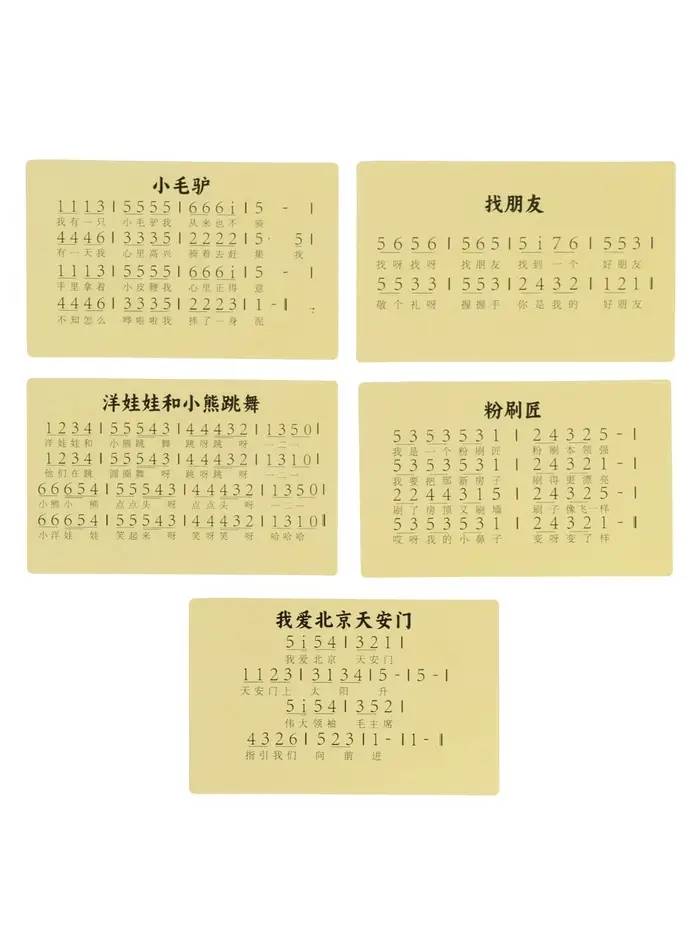 小毛驴
1113 | 5555 | 666i | 5 - |
我有一只 小毛驴我 从来也不 骑
4446 | 3335 | 2222 | 5· 5 |
有一天我 心里高兴 骑着去赶 集 我
1113 | 5555 | 666i | 5 - |
手里拿着 小皮鞭我 心里正得 意
4446 | 3335 | 2223 | 1 - ‖
不知怎么 哗啦啦我 摔了一身 泥
找朋友
5656 | 565 | 5i76 | 553 |
找呀找呀 找朋友 找到一个 好朋友
5533 | 553 | 2432 | 121 |
敬个礼呀 握握手 你是我的 好朋友
洋娃娃和小熊跳舞
1234 | 55543 | 44432 | 1350 |
洋娃娃和 小熊跳 舞 跳呀跳 呀 一二一
1234 | 55543 | 44432 | 1310 |
他们在跳 圆圈舞 呀 跳呀跳 呀 一二一
66654 | 55543 | 44432 | 1350 |
小熊小 熊 点点头 呀 点点头 呀 一二一
66654 | 55543 | 44432 | 1310 ‖
小洋娃 娃 笑起来 呀 笑呀笑 呀 哈哈哈
粉刷匠
5353531 | 24325 - |
我是一个粉刷匠 粉刷本领强
5353531 | 24321 - |
我要把那新房子 刷得更漂亮
2244315 | 24325 - |
刷了房顶又刷墙 刷子像飞一样
5353531 | 24321 - ‖
哎呀我的小鼻子 变呀变了样
我爱北京天安门
5i54 | 321 |
我爱北京 天安门
1123 | 3134 | 5 - | 5 - |
天安门上 太 阳 升
5i54 | 352 |
伟大领袖 毛主席
4326 | 523 | 1 - | 1 - ‖
指引我们 向 前 进